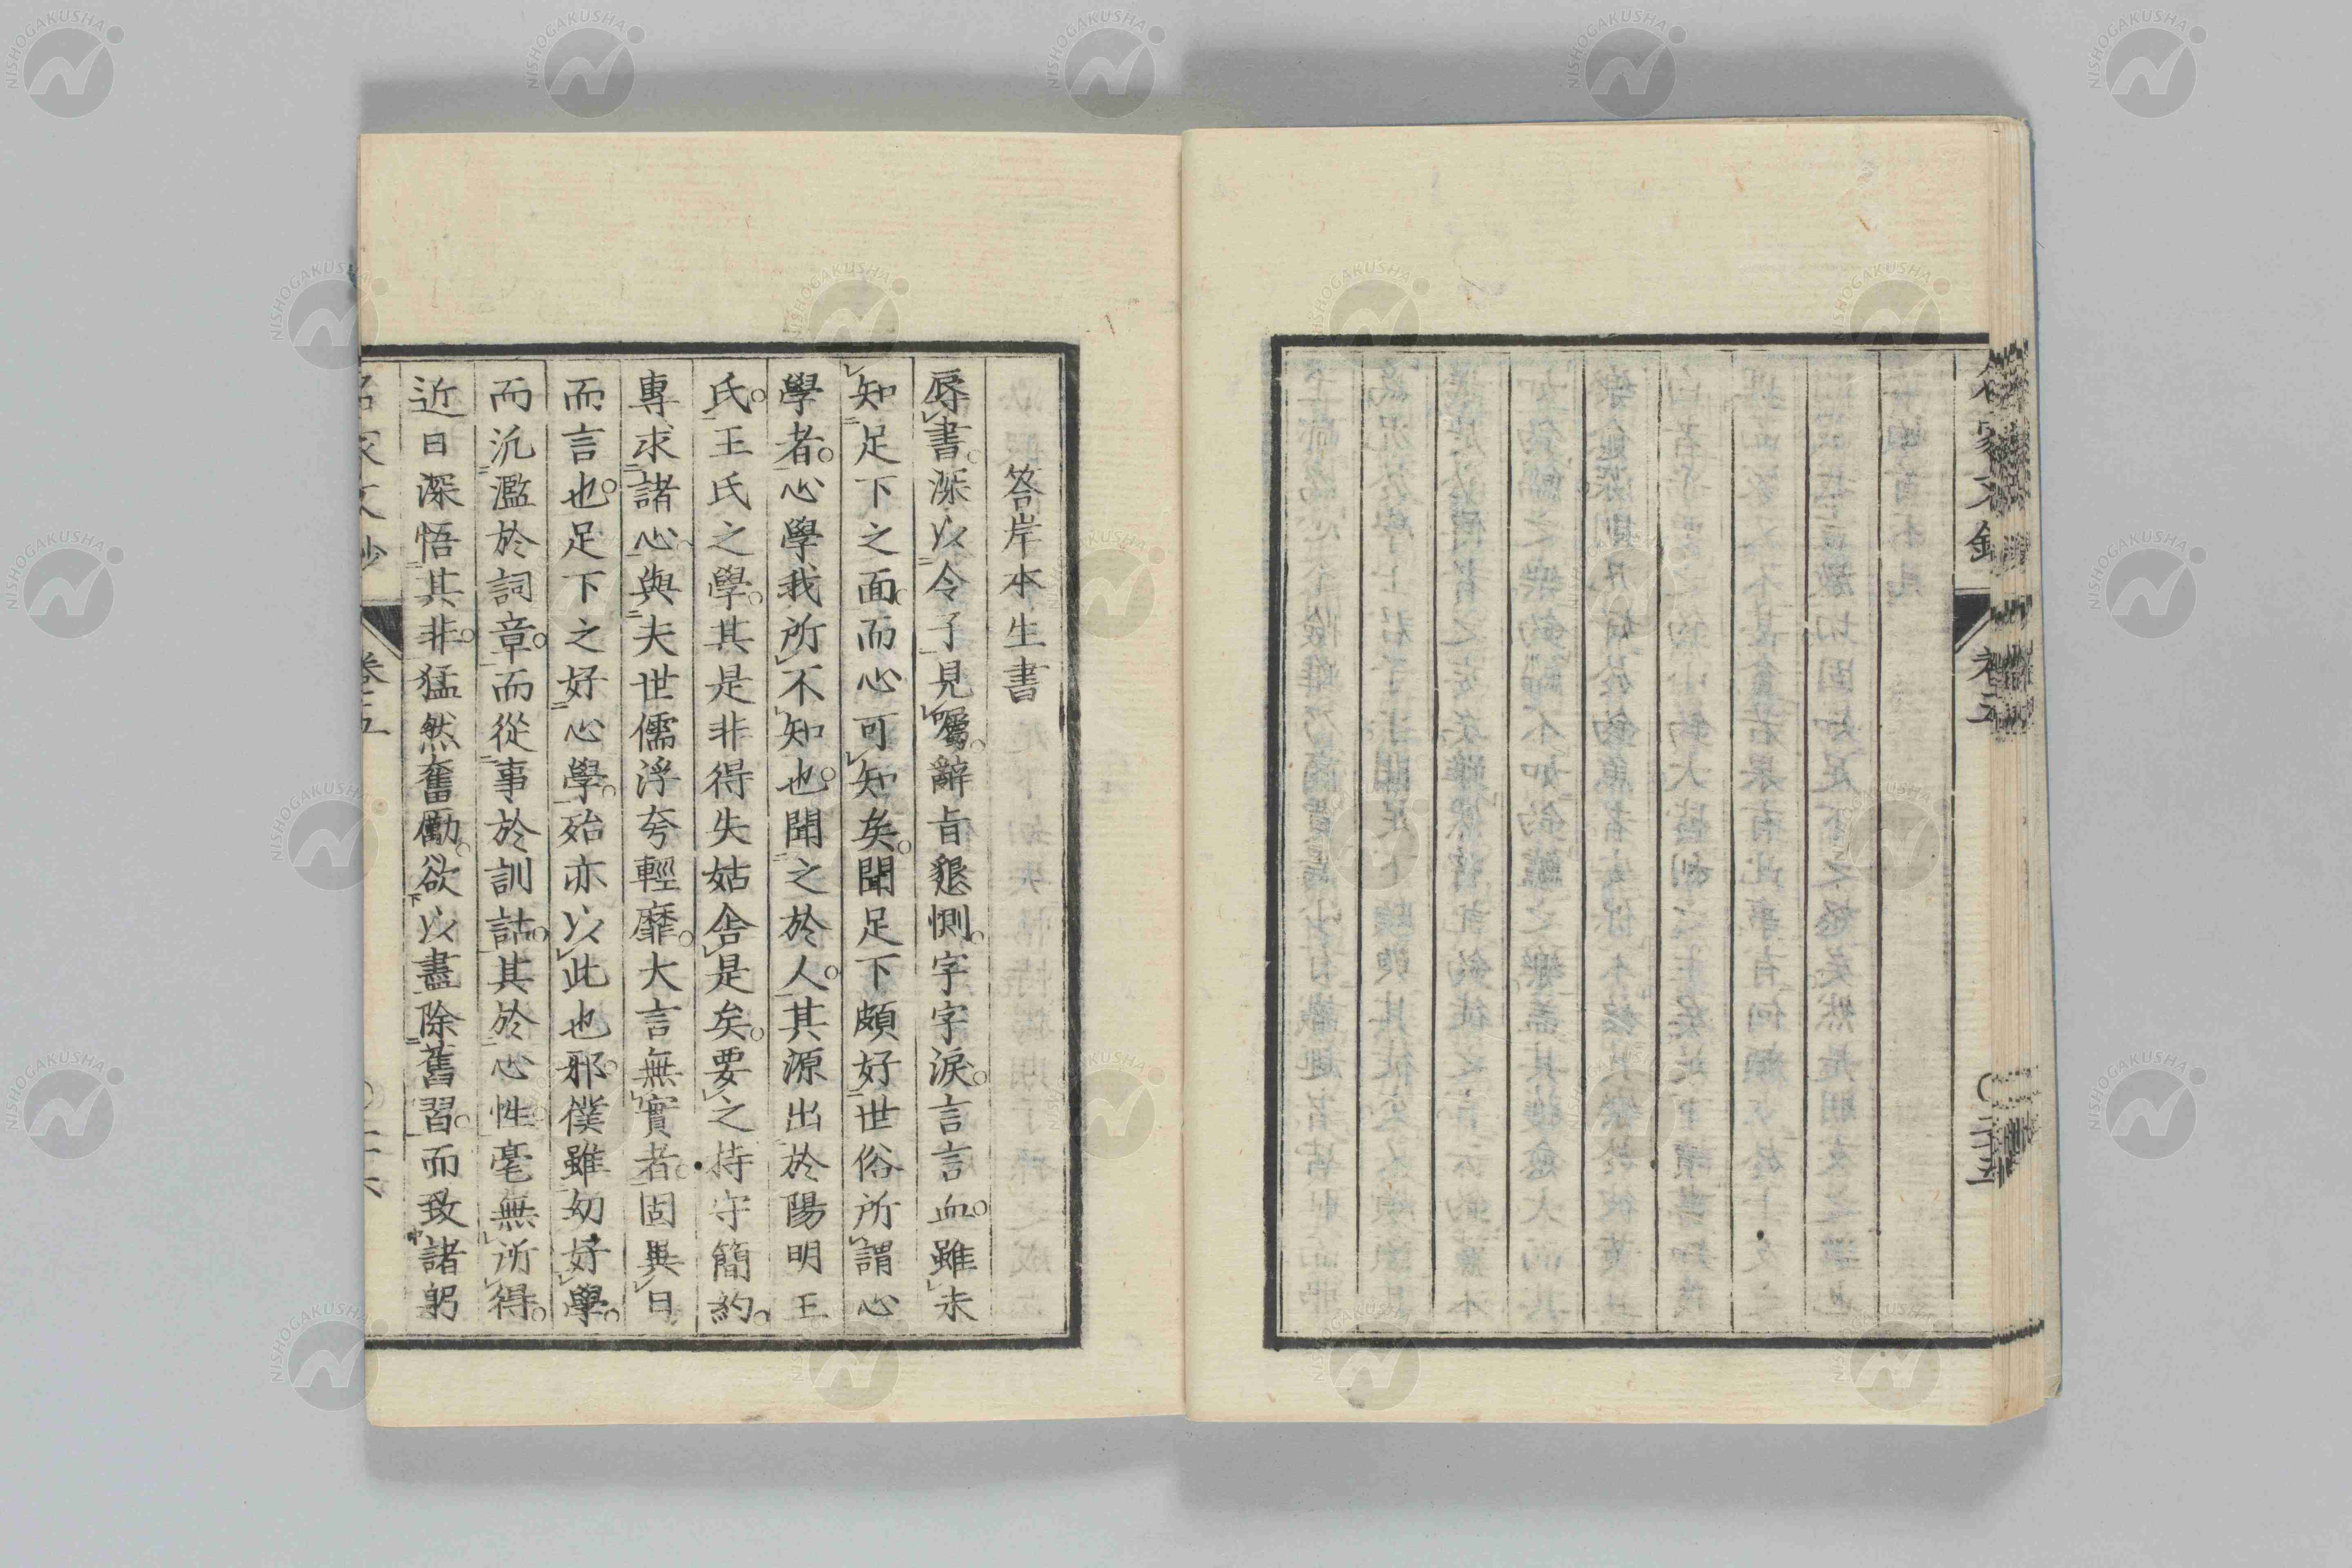 名家文鈔
卷五
二十五
答岸本生書
辱書深以令子見囑辭旨懇惻字字淚言言血雖未
知足下之面而心可知矣聞足下頗好世俗所謂心
學者心學我所不知也聞之於人其源出於陽明王
氏王氏之學其是非得失姑舍是矣要之持守簡約
專求諸心與夫世儒浮夸輕靡大言無實者固異日
而言也足下之好心學殆亦以此也邪僕雖幼好學
而汎濫於詞章而從事於訓詁其於心性毫無所得
近日深悟其非猛然奮勵欲以盡除舊習而致諸躬
名家文鈔
卷五
NISHOGAKUSHA